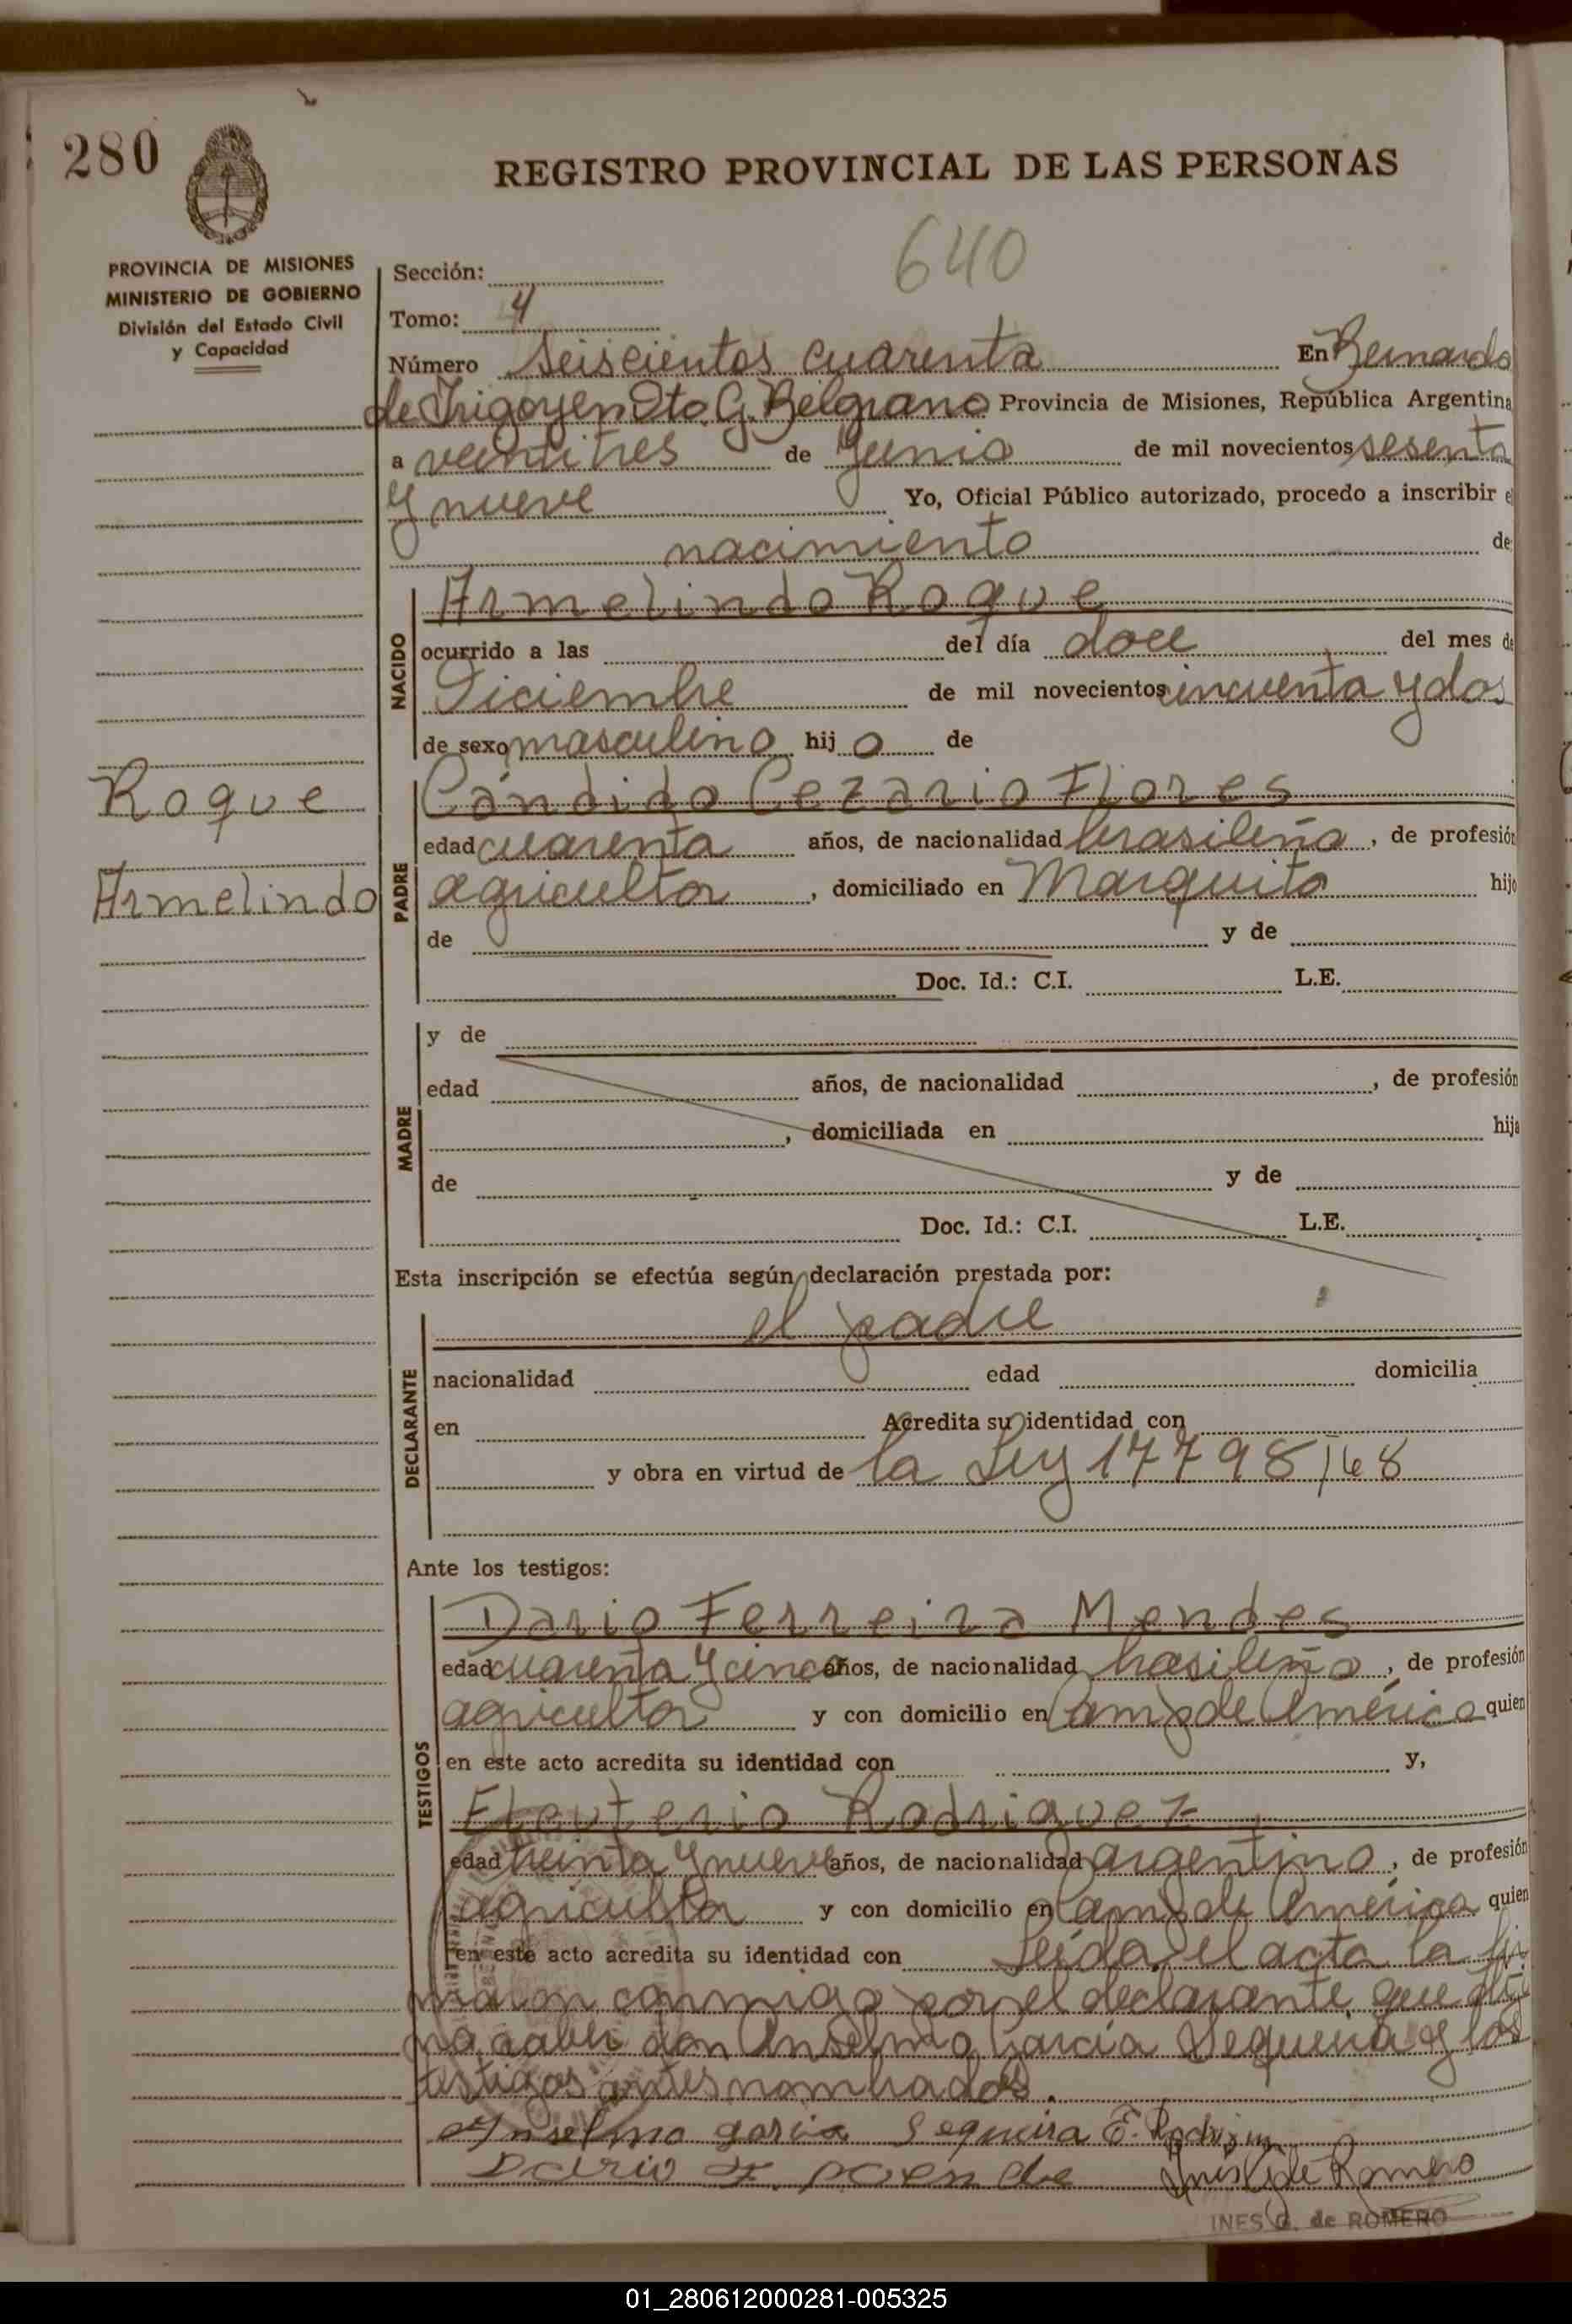 280
REGISTRO PROVINCIAL DE LAS PERSONAS
640
PROVINCIA DE MISIONES
MINISTERIO DE GOBIERNO
División del Estado Civil
y Capacidad
Sección:
Tomo: 4
Número seiscientos cuarenta En Bernardo
de Irigoyen Dto. G. Belgrano Provincia de Misiones, República Argentina
a veintitres de Junio de mil novecientos sesenta
y nueve Yo, Oficial Público autorizado, procedo a inscribir e
nacimiento de
NACIDO
Armelindo Roque
ocurrido a las del día doce del mes de
Diciembre de mil novecientos cincuenta y dos
de sexo masculino hijo de
Roque
Armelindo
PADRE
Cándido Cezario Flores
edad cuarenta años, de nacionalidad brasileña, de profesión
agricultor, domiciliado en Marquito hijo
de y de
Doc. Id.: C.I. L.E.
MADRE
y de
edad años, de nacionalidad , de profesión
, domiciliada en hija
de y de
Doc. Id.: C.I. L.E.
Esta inscripción se efectúa según declaración prestada por:
DECLARANTE
el padre
nacionalidad edad domicilia
en Acredita su identidad con
y obra en virtud de la Ley 17798/68
Ante los testigos:
TESTIGOS
Dario Ferreira Mendes
edad cuarenta y cinco años, de nacionalidad brasileña, de profesión
agricultor y con domicilio en Camp de América quien
en este acto acredita su identidad con y,
Eleuterio Rodriguez
edad treinta y nueve años, de nacionalidad argentino, de profesión
agricultor y con domicilio en Camp de América quien
en este acto acredita su identidad con Leída el acta la fir
maron conmigo por el declarante que
no saber don Anselmo García Sequeira y los
testigos antes nombrados.
Anselmo garcia Sequeira E. Rodriguez
Dario F. Ines G. de Romero
INES G. de ROMERO
01_280612000281-005325